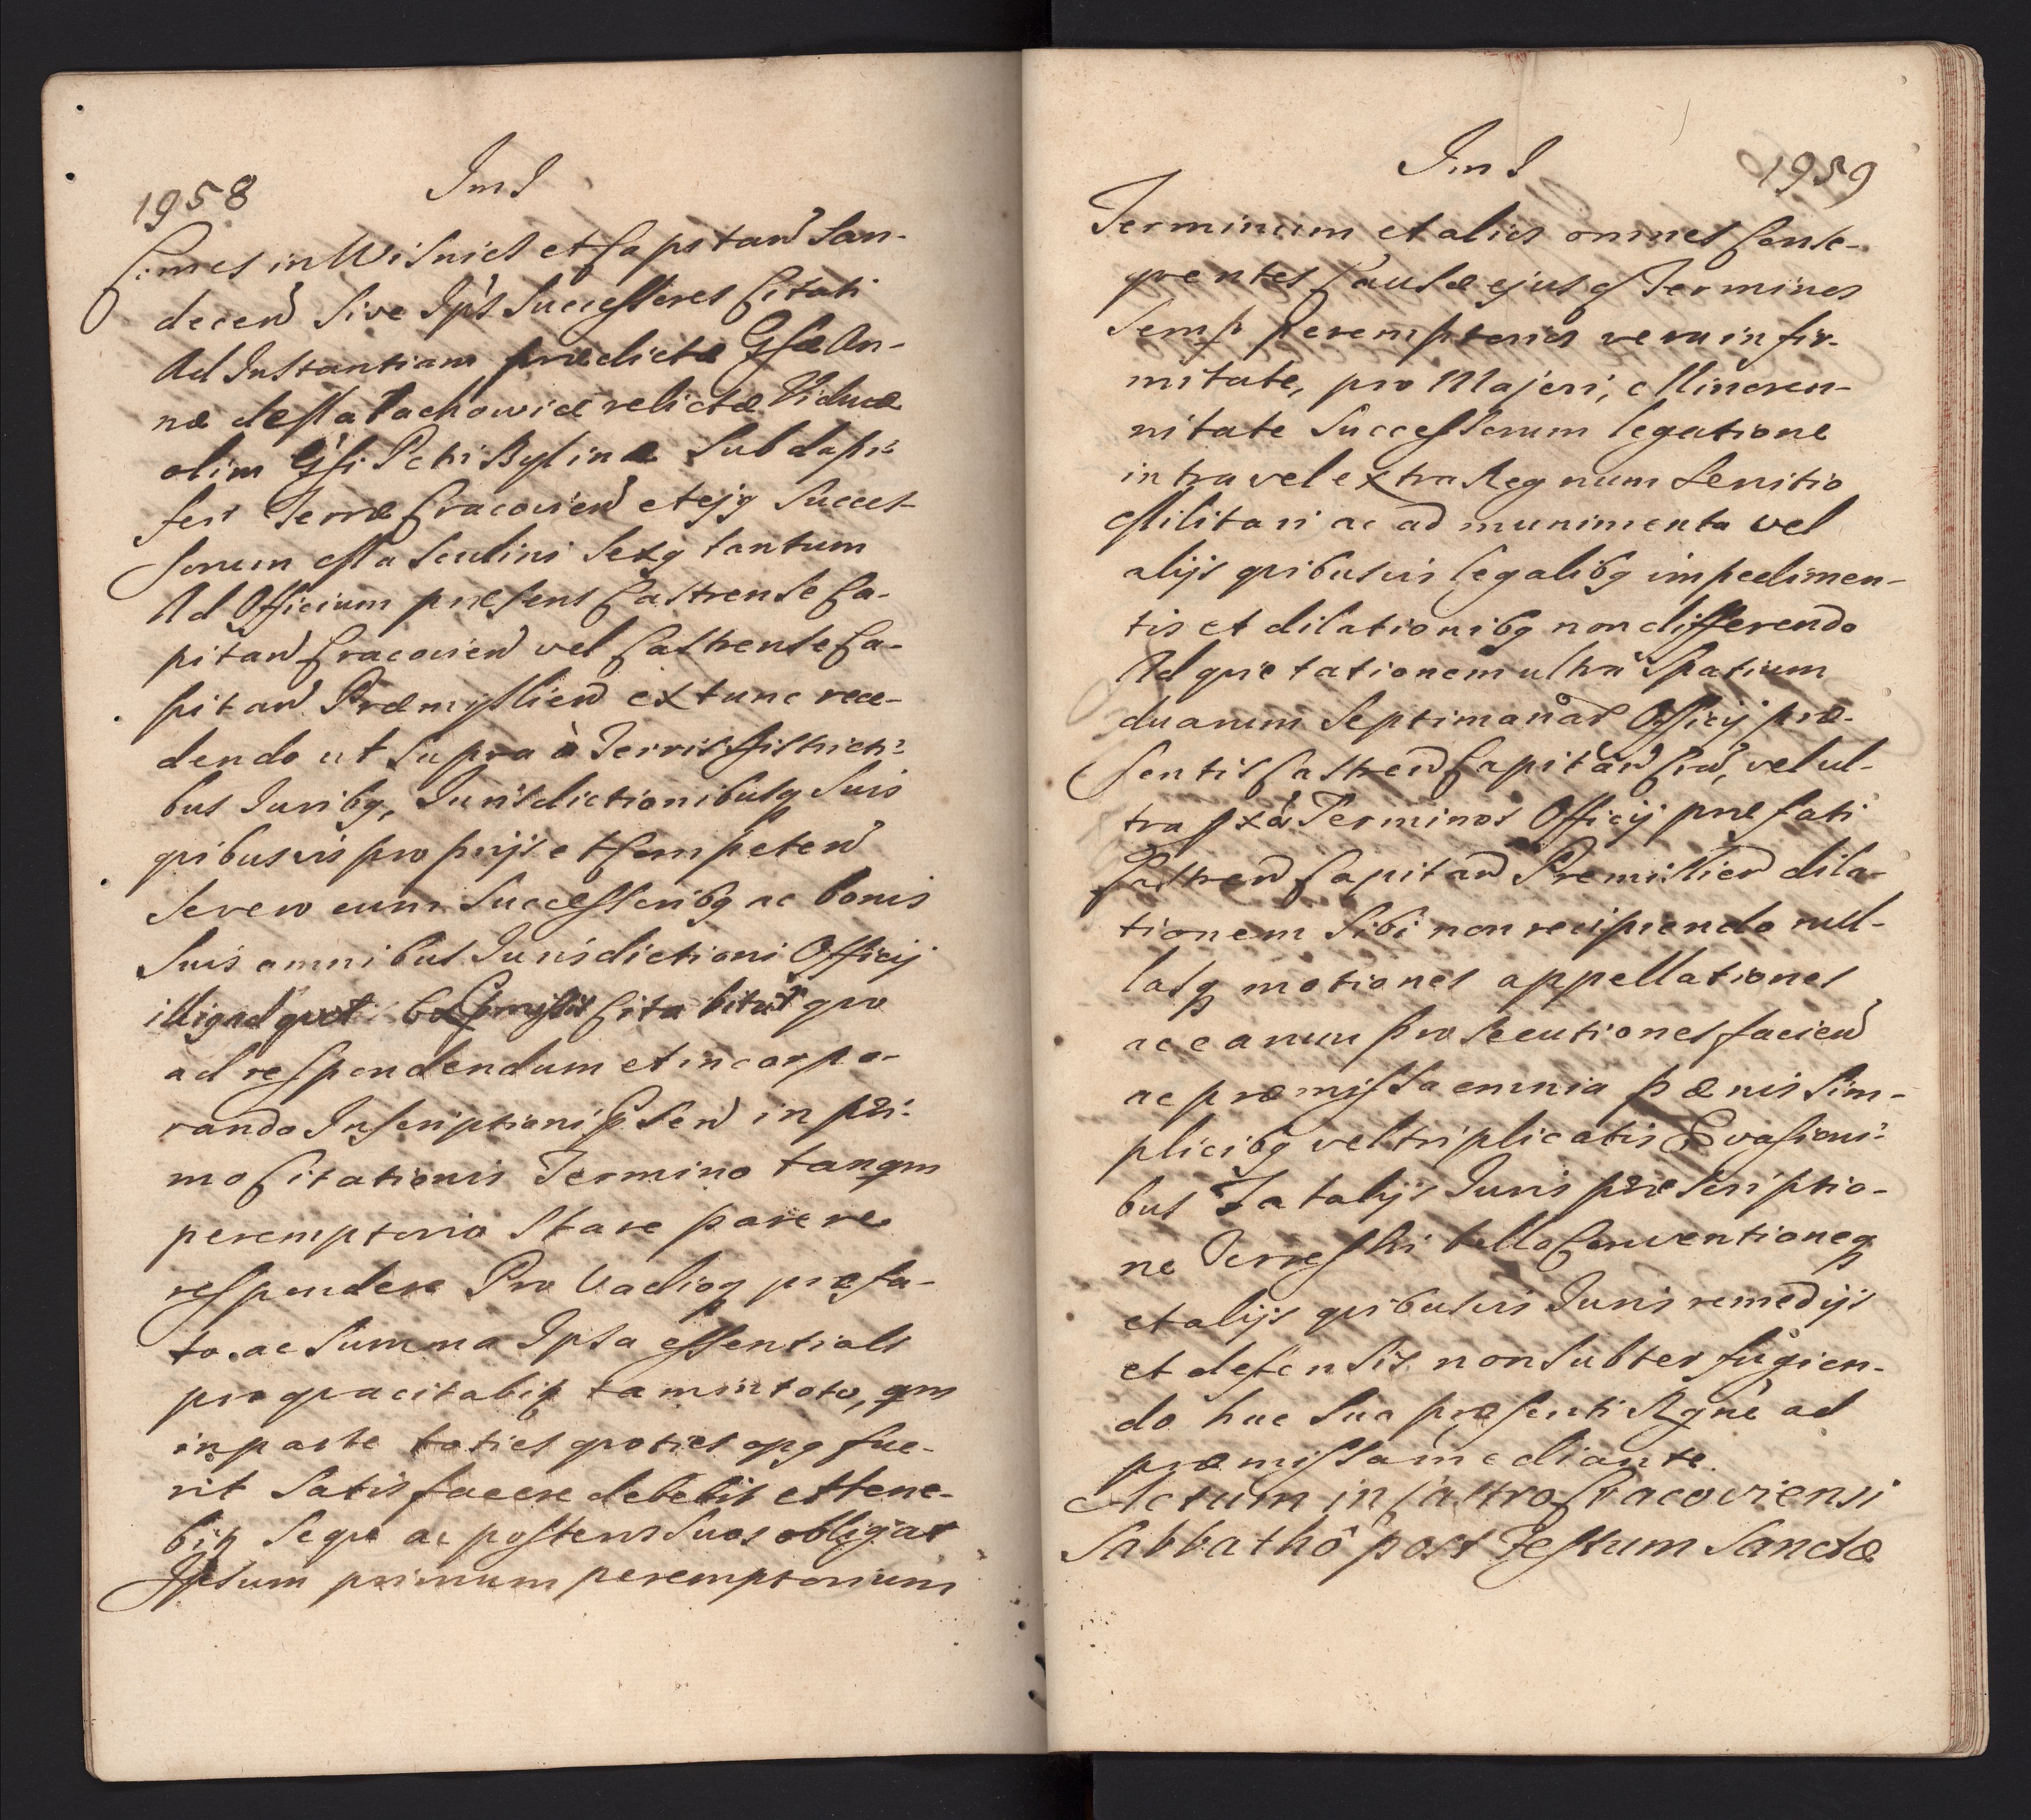 1958
Im I
Comes in Wisnicz et Capitan̄ San-
decen̄ Sive Ips Successores Citati
Ad Instantiam prædictæ Gsæ An-
næ de Malachowice relictæ Viduæ
olim Gsi Petri Bylinæ Subdapi-
feri Terræ Cracovien̄ et ejq Succes-
sorum Masculini Sexq tantum
Ad Officium præsens Castrense Ca-
pitan̄ Cracovien̄ vel Castrense Ca-
pitan̄ Præmysslien̄ extunc rece-
dendo ut supra à Terris Districti-
bus Juribq, Jurisdictionibusq Suis
qvibusvis proprijs et Competen̄
Severo cum Successoribq ac bonis
Suis omnibus Jurisdictioni Officij
illiq ad qvod Citabitur qvo
ad respondendum et incorpo-
rando Inscriptioni sen̄ in pri-
mo Citationis Termino tanqm
peremptorio Stare parere
respondere Pro Vadioq præfa-
to ac Summa Ipsa essentiali
pro qva citabit tam in toto, qm
in parte toties qvoties opq fue-
rit Satisfacere debebit et tene-
bit Seqve ac posteros Suos obligat
Ipsum primum peremptorium
Im I
1959
Terminum et alios omnes Conse-
qventes Causæ ejusq Terminos
Semp peremptorios vera infir-
mitate, pro Majori, Minoren-
nitate Successorum legatione
intra vel extra Regnum Servitio
Militari ac ad munimenta vel
alijs qvibusvis legalibq impedimen-
tis et dilationibq non differendo
Ad qvietationem ultra Spatium
duarum Septimanar Officij præ-
sentis Castren̄ Capitan̄ Cra, vel ul-
tra Terminos Officij præfati
Castren̄ Capitan̄ Premislien̄ dila-
tionem Sibi non recipiendo nul-
lasq motiones appellationes
ac earum prosecutiones facien̄
ac præmissa omnia pænis Sim-
plicibq vel triplicatis Evasioni-
bus Fatalijs Juris præscriptio-
ne Terrestri bello Conventioneq
et alijs qvibusvis Juris remedijs
et defensis non Subterfugien-
do hac Sua præsenti Rgne ad
præmissa mediante.
Actum in Castro Cracoviensi
Sabbathô post Festum Sanctæ